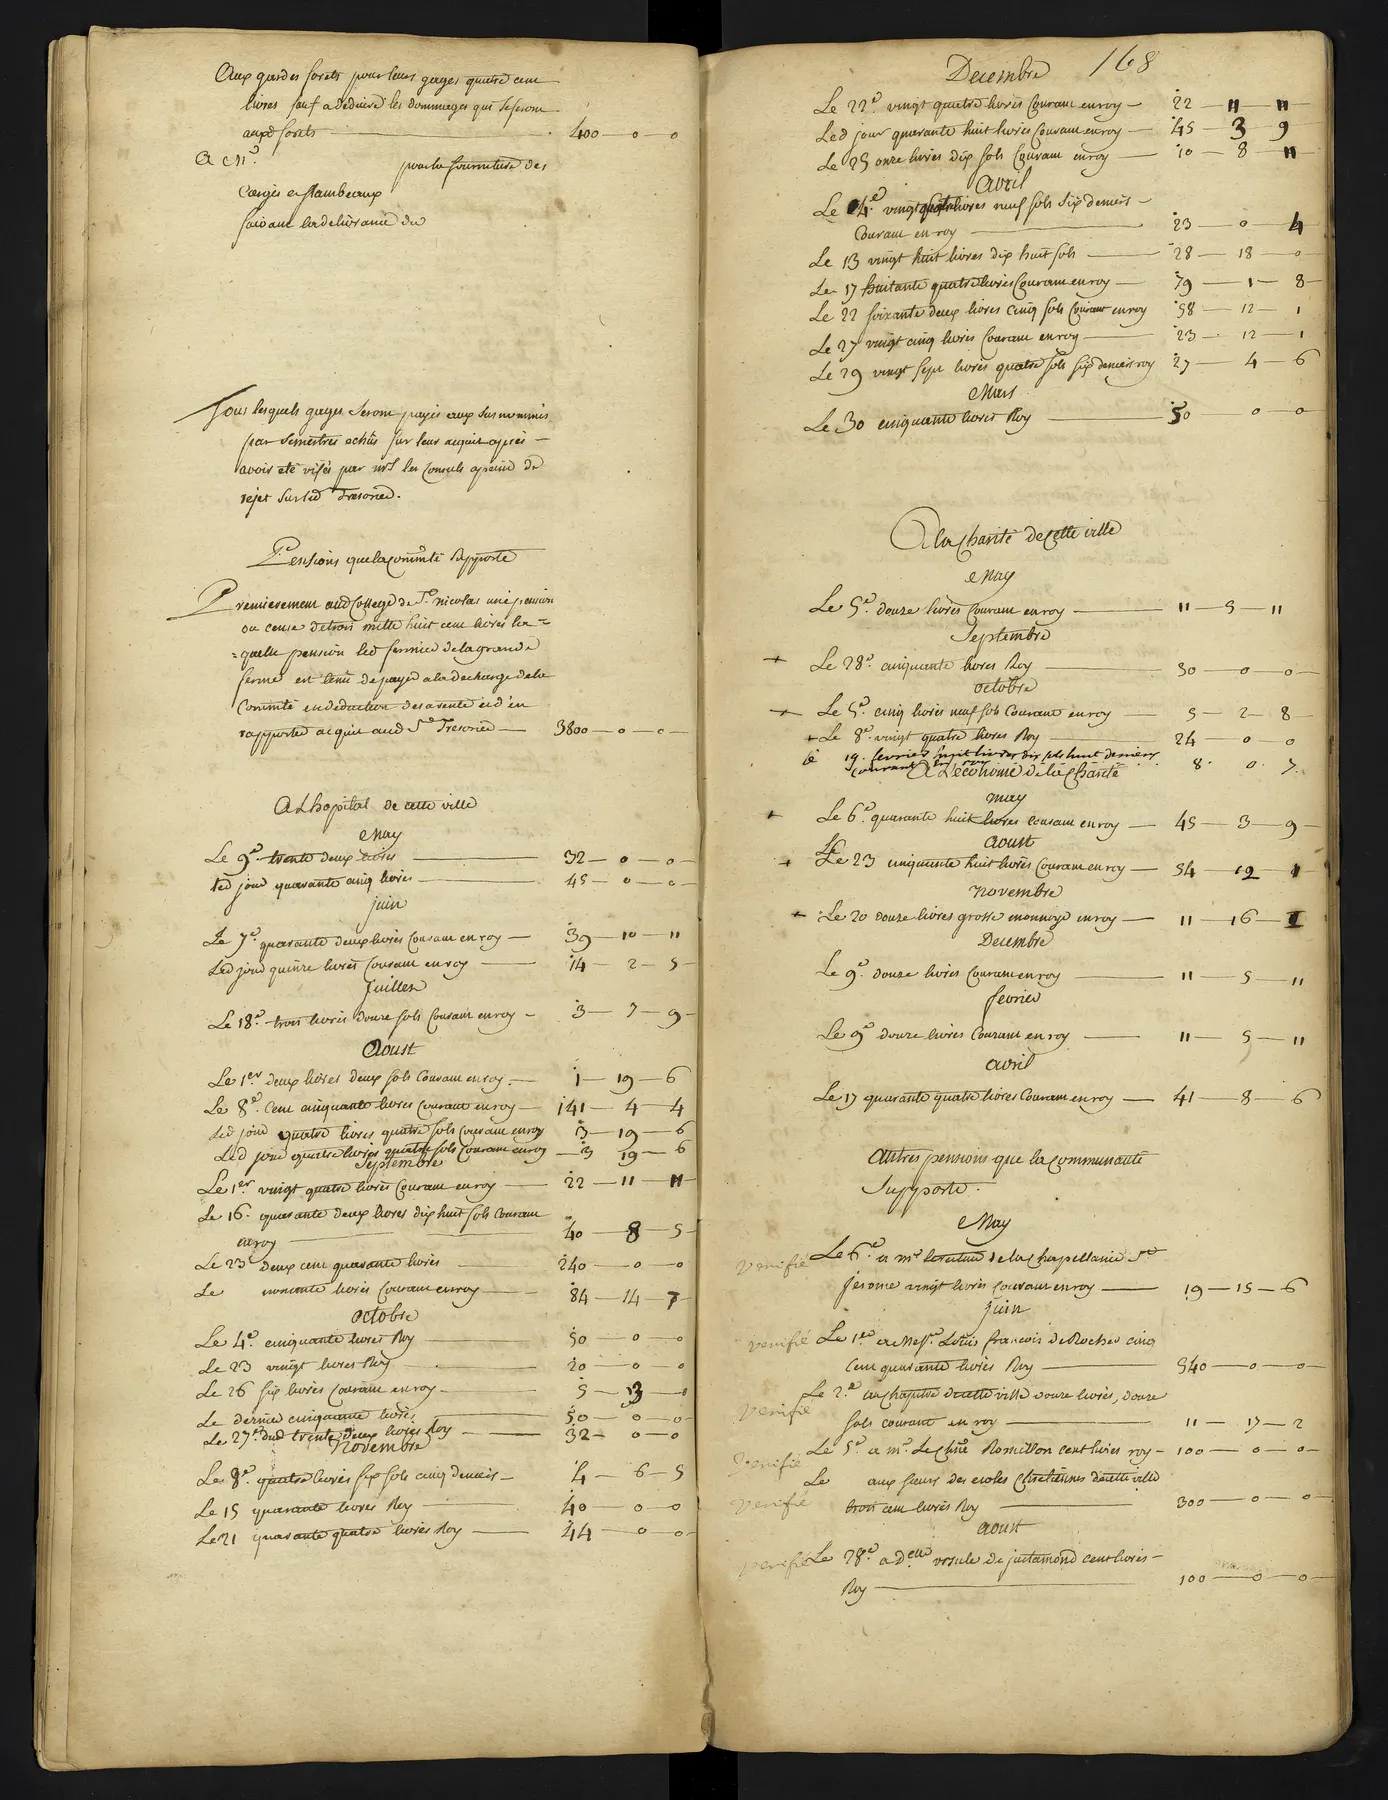 Aux gardes forets pour leurs gages quatre cent
livres sauf a deduire les dommages qui se feront
auxd forets 400 - 0 - 0
A Mr. pour la fourniture des
cierges et flambeaux
suivant la delivrance du
Tous lesquels gages seront payés aux surnommés
par semestres echûs sur leur acquit après
avoir eté visés par mrs les Consuls a peine de
rejet sur led Tresorier.
Pensions que la comm.té supporte
Premierement aud College de St. nicolas une pension
ou cense de trois mille huit cent livres la=
=quelle pension led fermier de la grande
ferme est tenu de payer a la decharge de la
Commté en deduction de sa rente et d'en
rapporter acquit aud Sr Tresorier 3800 - 0 - 0
A L'hopital de cette ville
May
Le 9e. trente deux livres 32 - 0 - 0
led jour quarante cinq livres 45 - 0 - 0
juin
Le 7e. quarante deux livres Courant en roy 39 - 10 - 11
Led jour quinze livres Courant en roy 14 - 2 - 5
juillet
Le 18e. trois livres douze sols Courant en roy 3 - 7 - 9
Aoust
Le 1er deux livres deux sols Courant en roy 1 - 19 - 6
Le 8e. Cent cinquante livres Courant en roy 141 - 4 - 4
Led jour quatre livres quatre sols Courant en roy 3 - 19 - 6
Led jour quatre livres quatre sols Courant en roy 3 19 - 6
Septembre
Le 1er. vingt quatre livres Courant en roy 22 - 11 - 11
Le 16. quarante deux livres dix huit sols Courant
en roy 40 - 8 - 5
Le 23 deux cent quarante livres 240 - 0 - 0
Le nonante livres Courant en roy 84 - 14 - 7
octobre
Le 4e cinquante livres Roy 50 - 0 - 0
Le 23 vingt livres Roy 20 - 0 - 0
Le 26 six livres Courant en roy 5 - 13 - 0
Le dernier cinquante livres 50 - 0 - 0
Le 27e. dud trente deux livres Roy 32 - 0 - 0
Novembre
Le 8e. quatre livres six sols cinq deniers 4 - 6 - 5
Le 15 quarante livres Roy 40 - 0 - 0
Le 21 quarante quatre livres Roy 44 - 0 - 0
168
Decembre
Le 22e. vingt quatre livres Courant en roy 22 - 11 - 11
Led jour quarante huit livres Courant en roy 45 - 3 9
Le 25 onze livres dix sols Courant en roy 10 - 8 - 11
avril
Le 4e. vingt livres neuf sols six deniers
Courant en roy 23 - 0 - 4
Le 13 vingt huit livres dix huit sols 28 - 18 - 0
Le 17 huitante quatre livres Courant en roy 79 - 1 - 8
Le 22 soixante deux livres cinq sols Courant en roy 58 - 12 - 1
Le 27 vingt cinq livres Courant en roy 23 - 12 - 1
Le 29 vingt sept livres quatre sols six deniers roy 27 - 4 - 6
Mars
Le 30 cinquante livres Roy 50 0 - 0
A la Charité de cette ville
May
Le 5e. douze livres Courant en roy 11 - 5 - 11
Septembre
+ Le 28e. cinquante livres Roy 50 0 - 0
octobre
+ Le 5e. cinq livres neuf sols Courant en roy 5 - 2 - 8
+ Le 8e. vingt quatre livres Roy 24 - 0 0
le 19. fevrier huit livres dix sols huit deniers
courant en roy 8. 0. 7.
A L'économe de la Charité
may
+ Le 6e. quarante huit livres courant en roy 45 - 3 - 9
aoust
+ Le 23 cinquante huit livres Courant en roy 54 - 12 1
novembre
+ Le 20 douze livres grosse monnoye en roy 11 - 16 - 1
Decembre
Le 9e. douze livres Courant en roy 11 - 5 - 11
fevrier
Le 9e douze livres Courant en roy 11 - 5 - 11
avril
Le 17 quarante quatre livres Courant en roy 41 - 8 - 6
Autres pensions que la communauté
Supporte.
May
verifié Le 6e. a mr le recteur de la Chapellanie St
jerome vingt livres courant en roy 19 - 15 - 6
juin
verifié Le 1er a Messr. Louis francois de Rocher cinq
Cent quarante livres Roy 540 - 0 - 0
verifié Le 2e. au chapitre de cette ville douze livres, douze
sols courant en roy 11 - 17 - 2
verifié Le 5e. a mr. Le Cher Romillon cent livres roy 100 - 0 - 0
verifié Le aux soeurs des ecoles Chretiennes de cette ville
trois cent livres Roy 300 - 0 - 0
aoust
verifié Le 28e. a Delle ursule de justamond cent livres
Roy 100 - 0 - 0